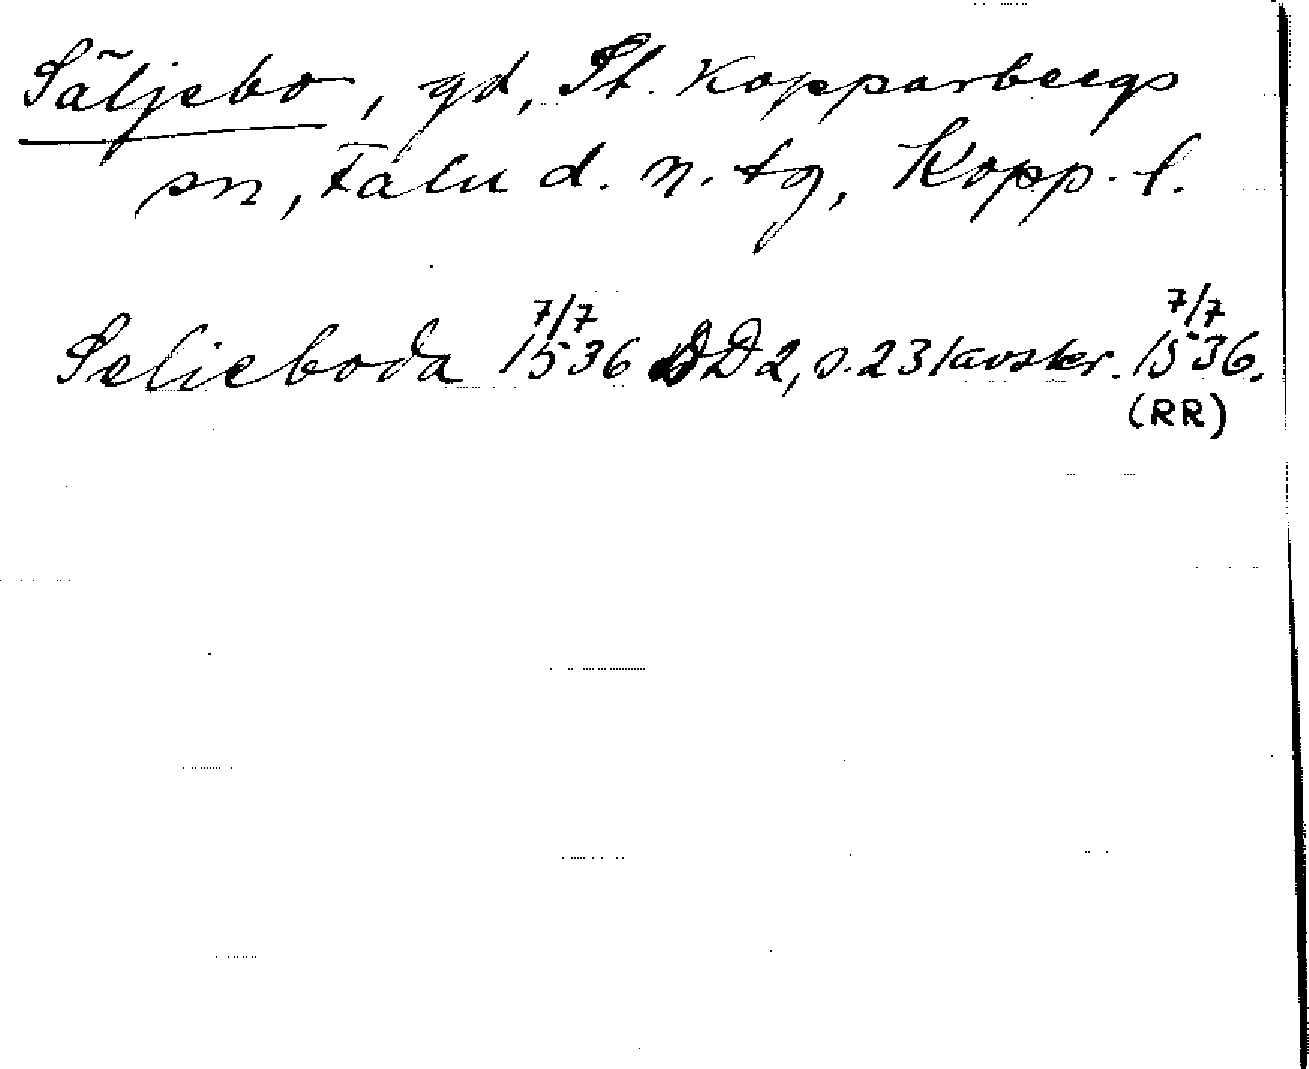 Säljebo, gd, St. Kopparbergs
sn, Falu d. n. tg, Kopp. l.
Selieboda 7/7 1536 DD 2, s. 231 avskr. 7/7 1536.
(RR)